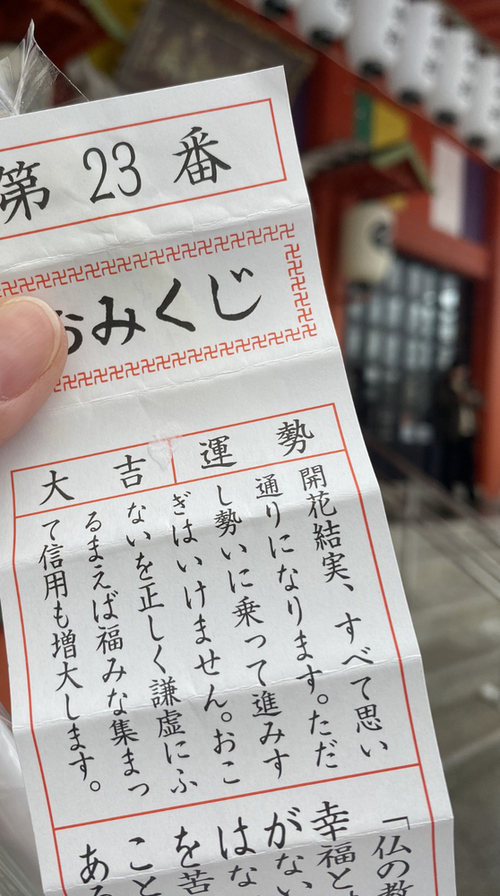 第 23 番
おみくじ
大吉 運勢
開花結実、すべて思い
通りになります。ただ
し勢いに乗って進みす
ぎはいけません。おこ
ないを正しく謙虚にふ
るまえば福みな集まっ
て信用も増大します。
「仏の教
幸福と
がない
はな
を苦
こと
ある